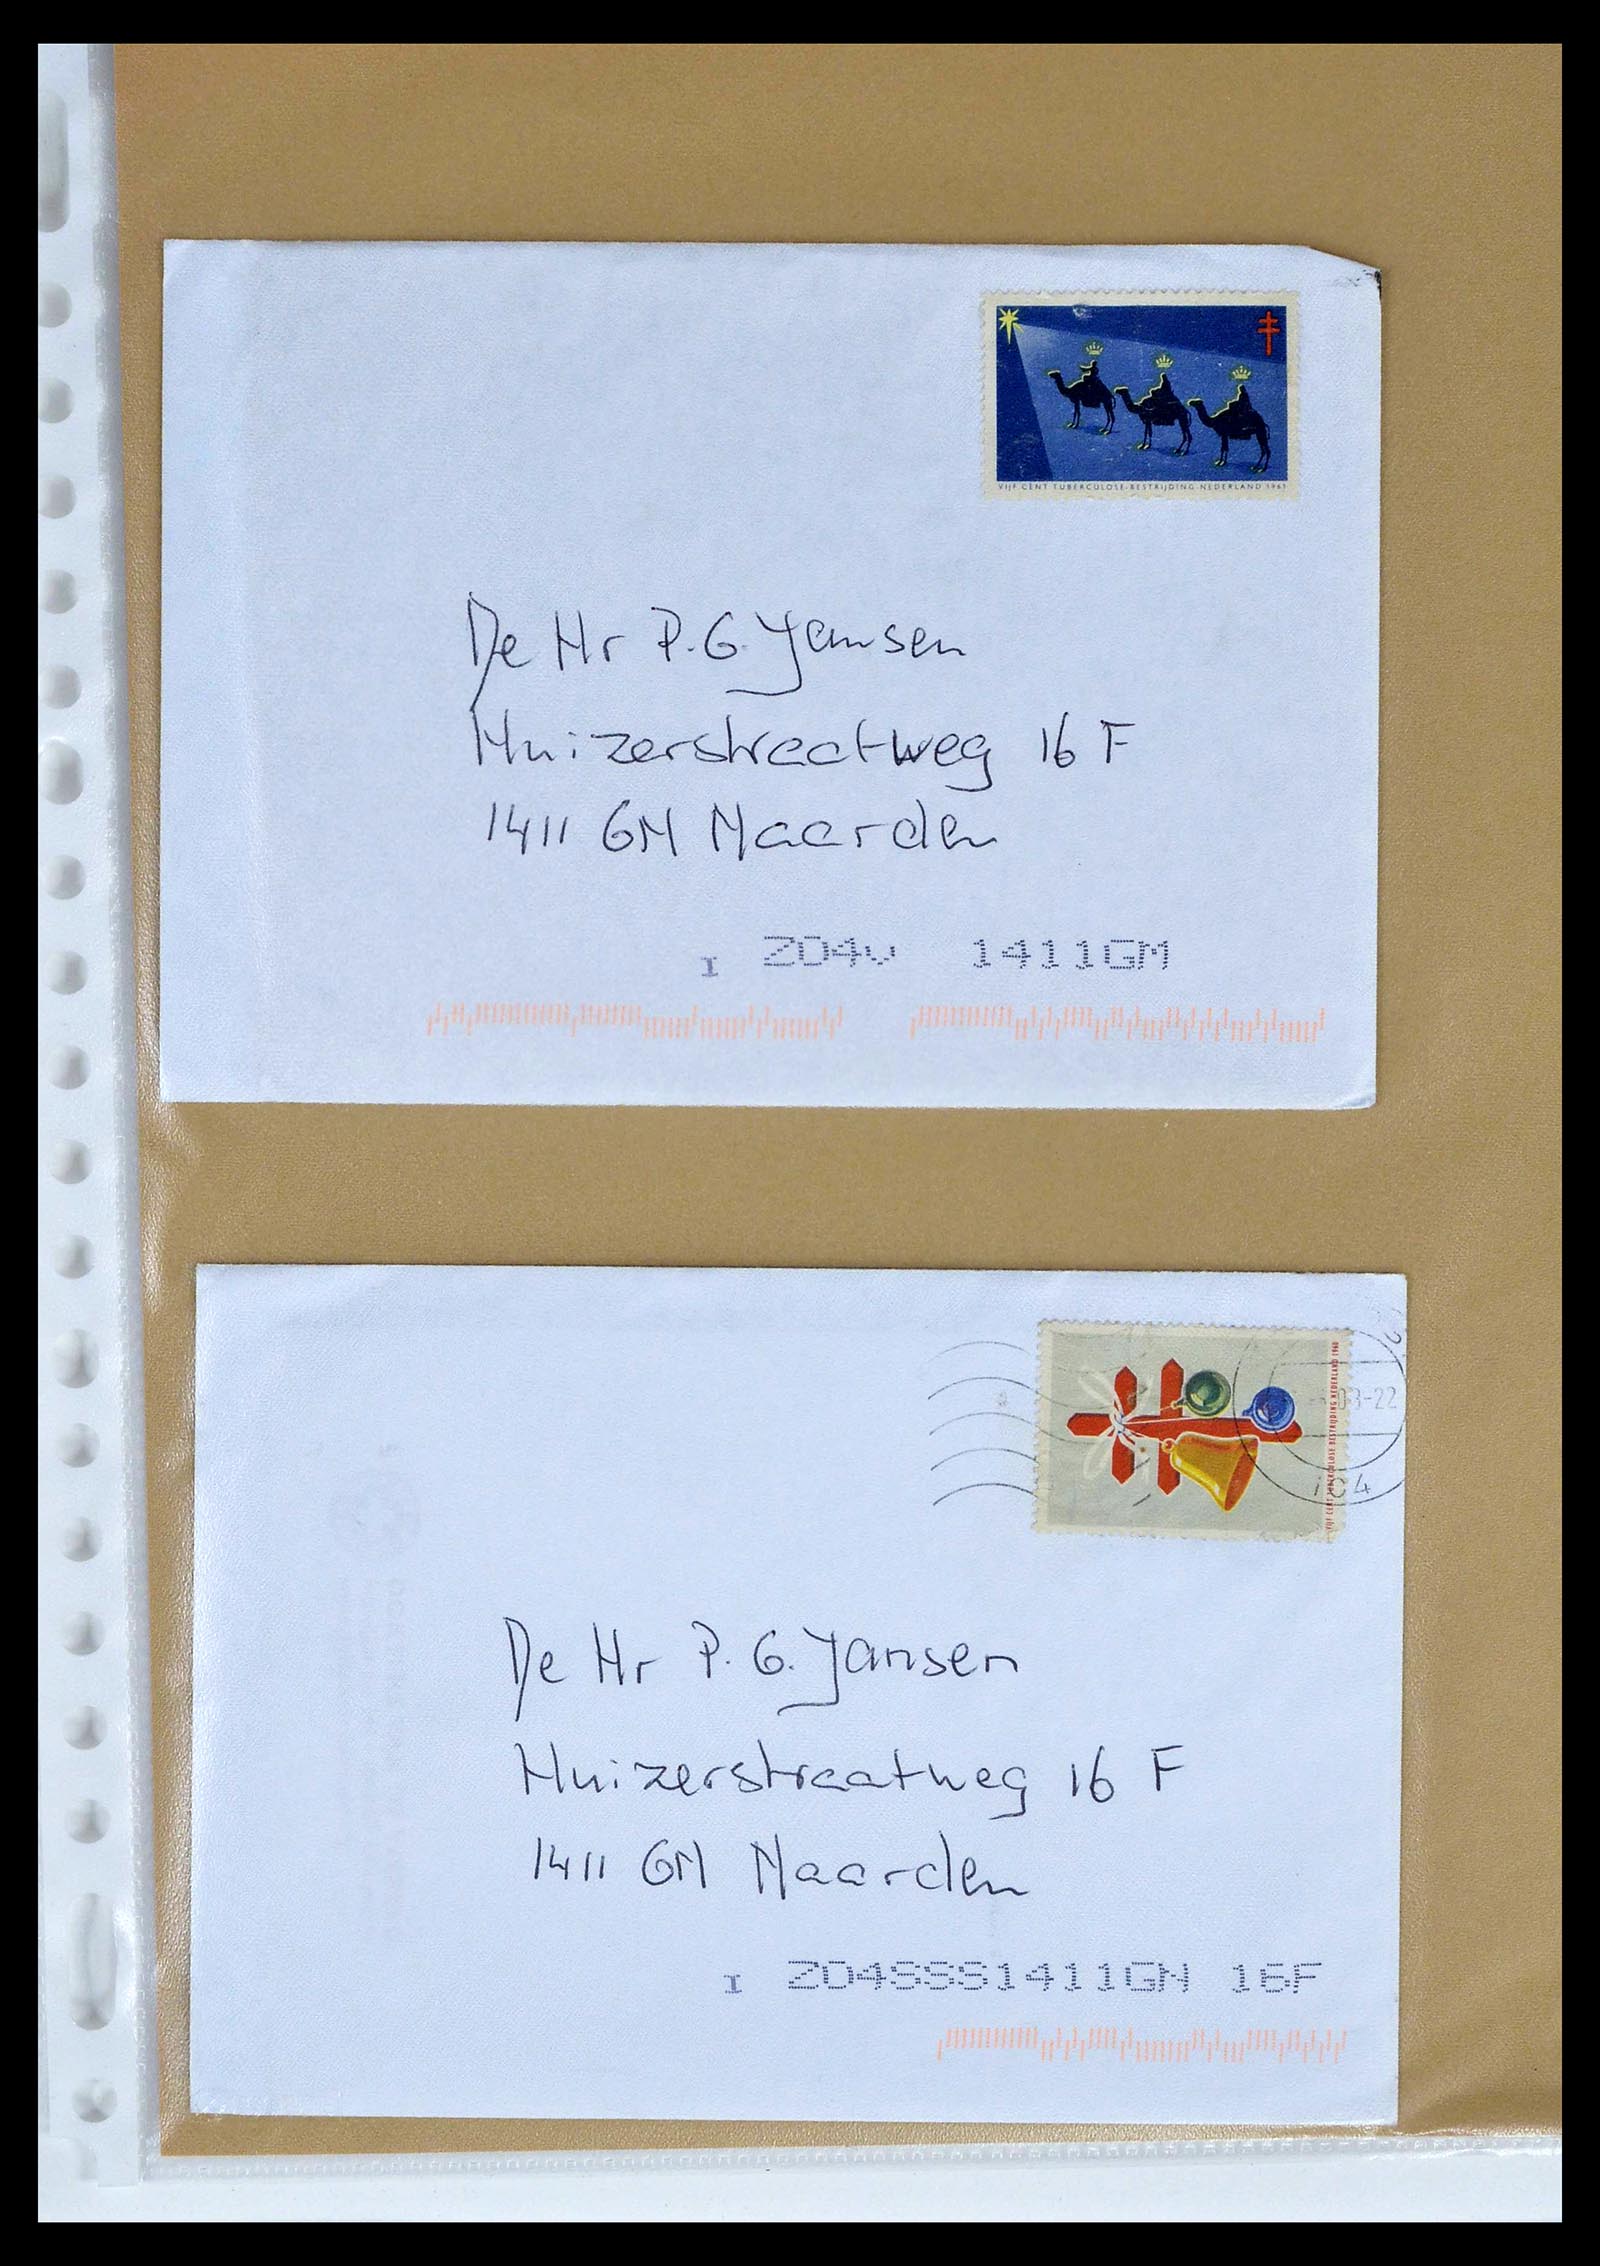 VIJF CENT TUBERCULOSE-BESTRIJDING-NEDERLAND 1961
De Hr P.G. Jansen
Huizerstraatweg 16 F
1411 GM Naarden
I ZO4v 1411GM
VIJF CENT TUBERCULOSE BESTRIJDING NEDERLAND 1960
03-22
De Hr P.G. Jansen
Huizerstraatweg 16 F
1411 GM Naarden
I ZO4SSS1411GN 16F